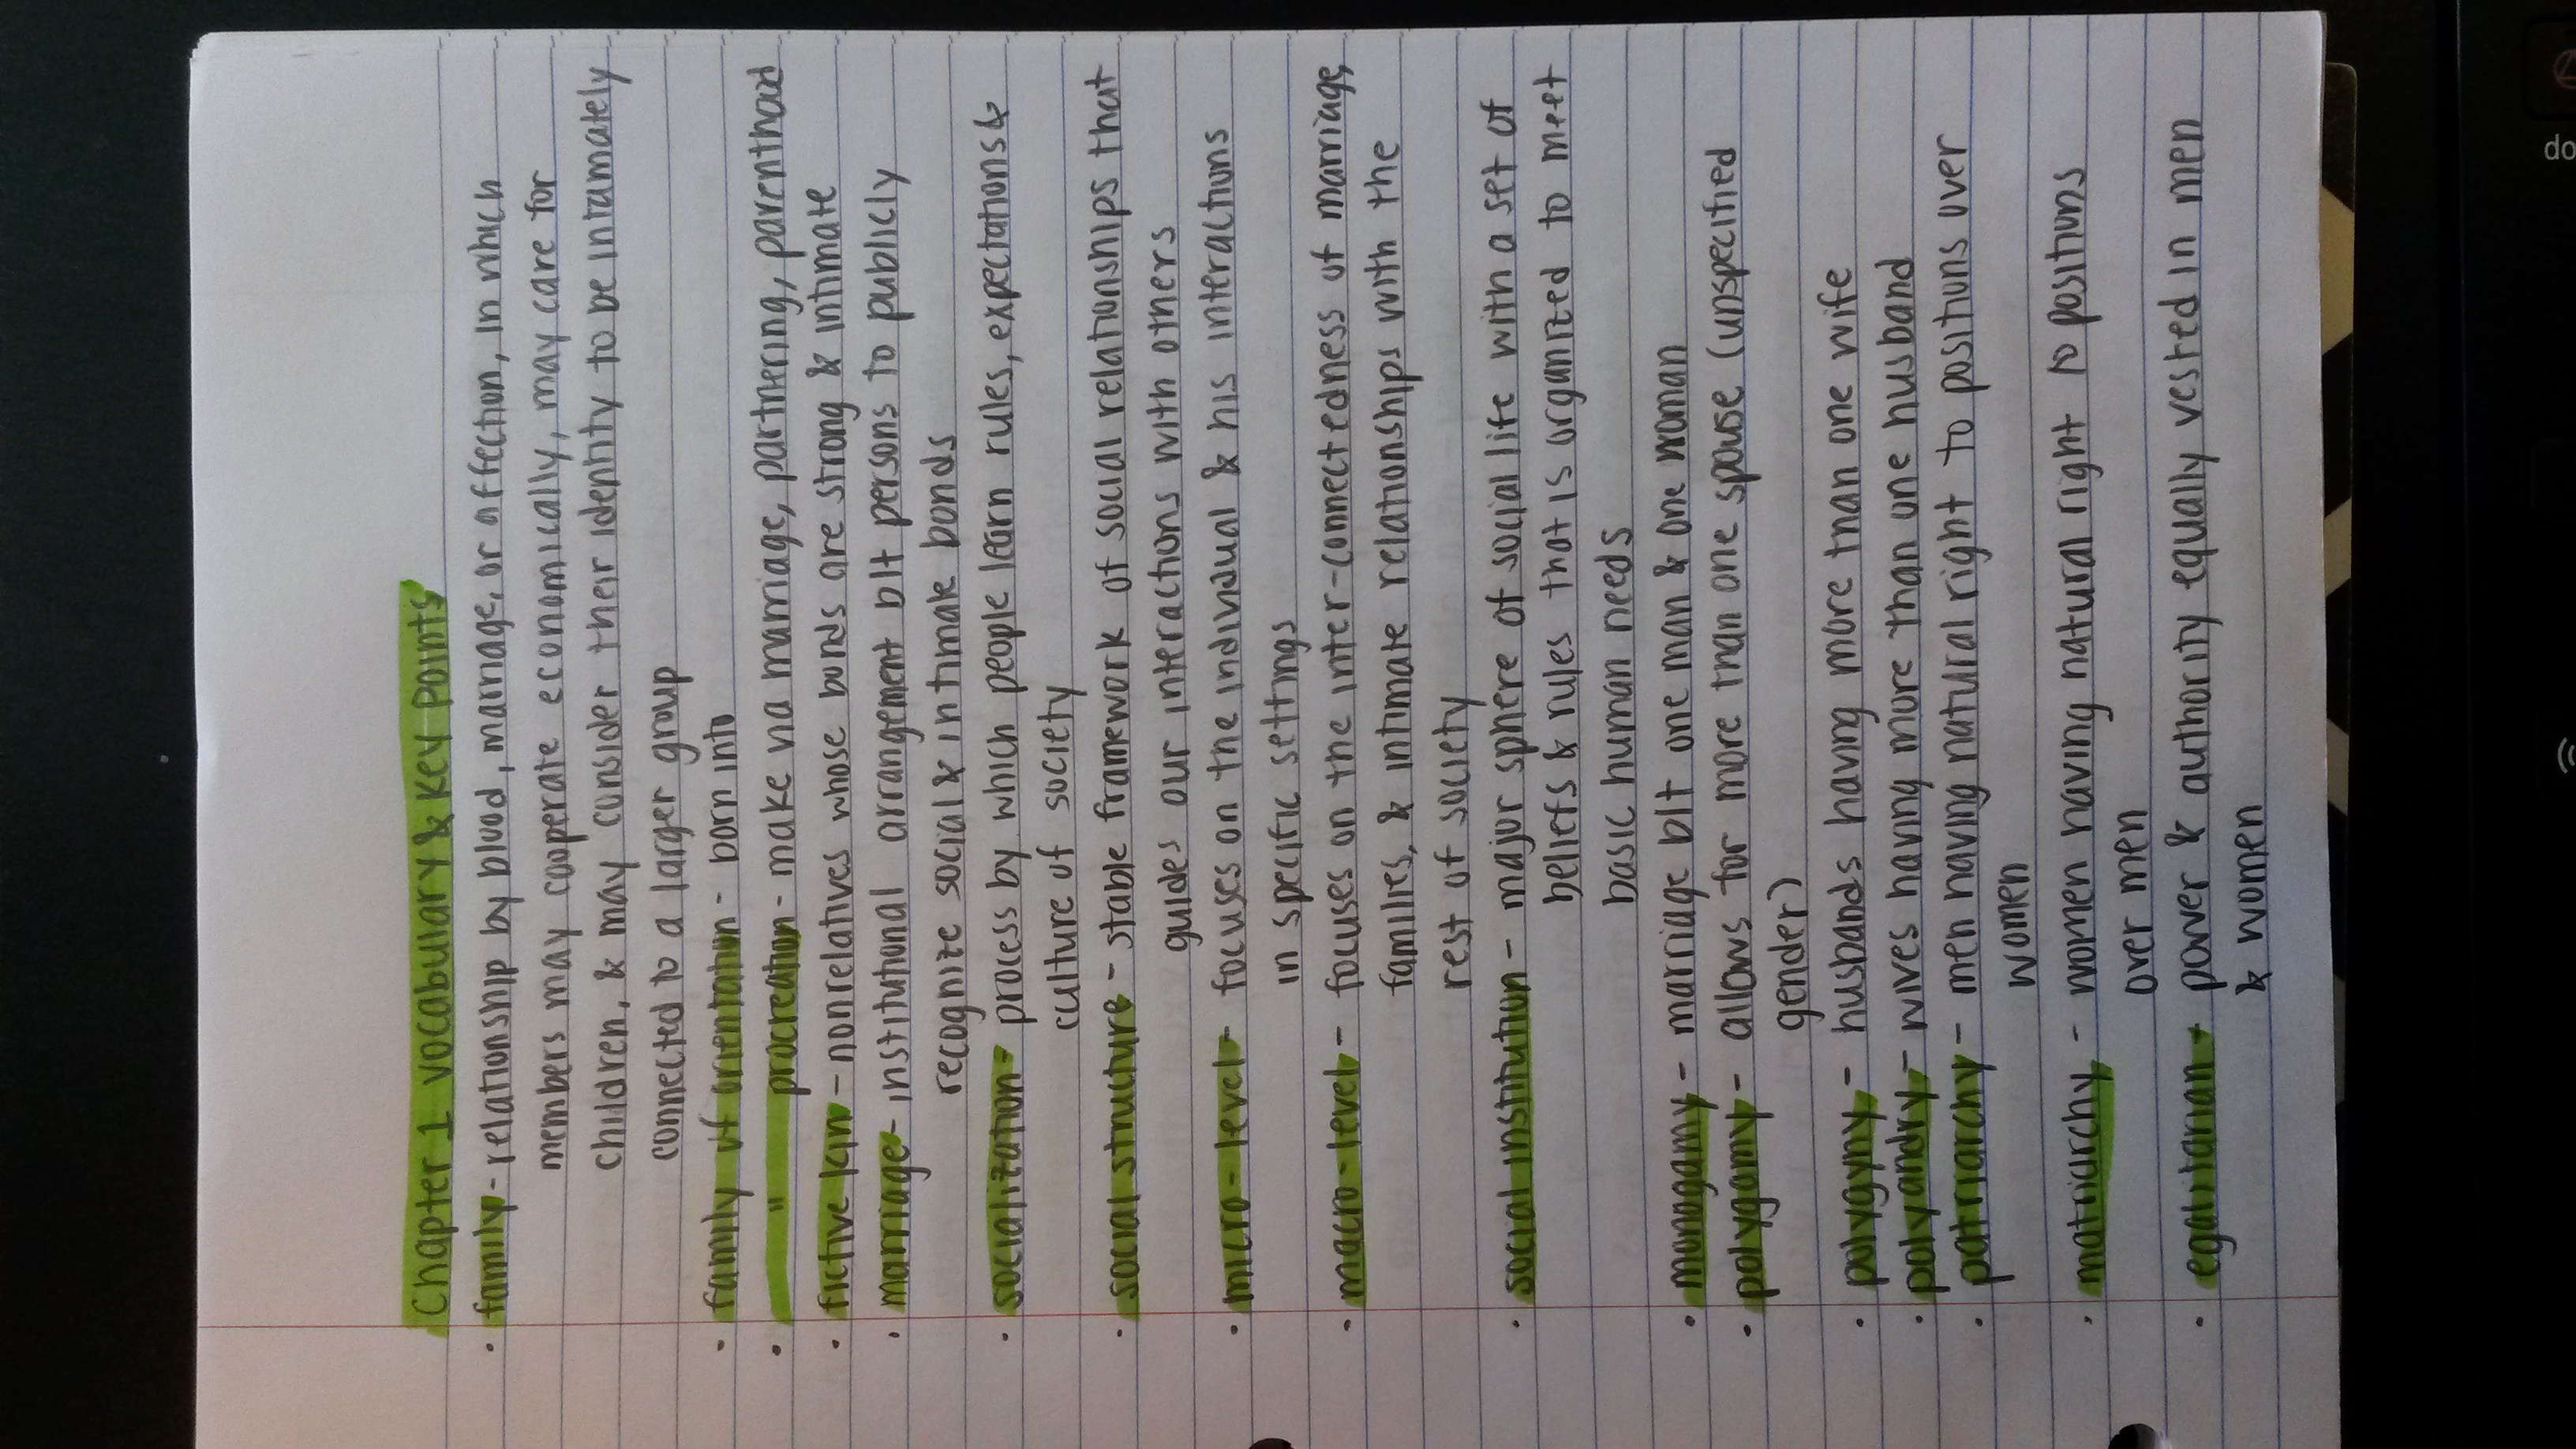 Chapter 1 vocabulary & Key Points
• family - relationship by blood, marriage, or affection, in which
members may cooperate economically, may care for
children, & may consider their identity to be intamately
connected to a larger group
• family of orientation - born into
• " procreation - make via marriage, partnering, parenthood
• fictive kin - nonrelatives whose bonds are strong & intimate
• marriage - institutional arrangement b/t persons to publicly
recognize social & intimate bonds
• socialization - process by which people learn rules, expectations &
culture of society
• social structure - stable framework of social relationships that
guides our interactions with others
• micro-level - focuses on the individual & his interactions
in specific settings
• macro-level - focuses on the inter-connectedness of marriage,
families, & intimate relationships with the
rest of society
• social institution - major sphere of social life with a set of
beliefs & rules that is organized to meet
basic human needs
• monogamy - marriage b/t one man & one woman
• polygamy - allows for more than one spouse (unspecified
gender)
• polygyny - husbands having more than one wife
• polyandry - wives having more than one husband
• patriarchy - men having natural right to positions over
women
• matriarchy - women having natural right to positions
over men
• egalitarian - power & authority equally vested in men
& women
do